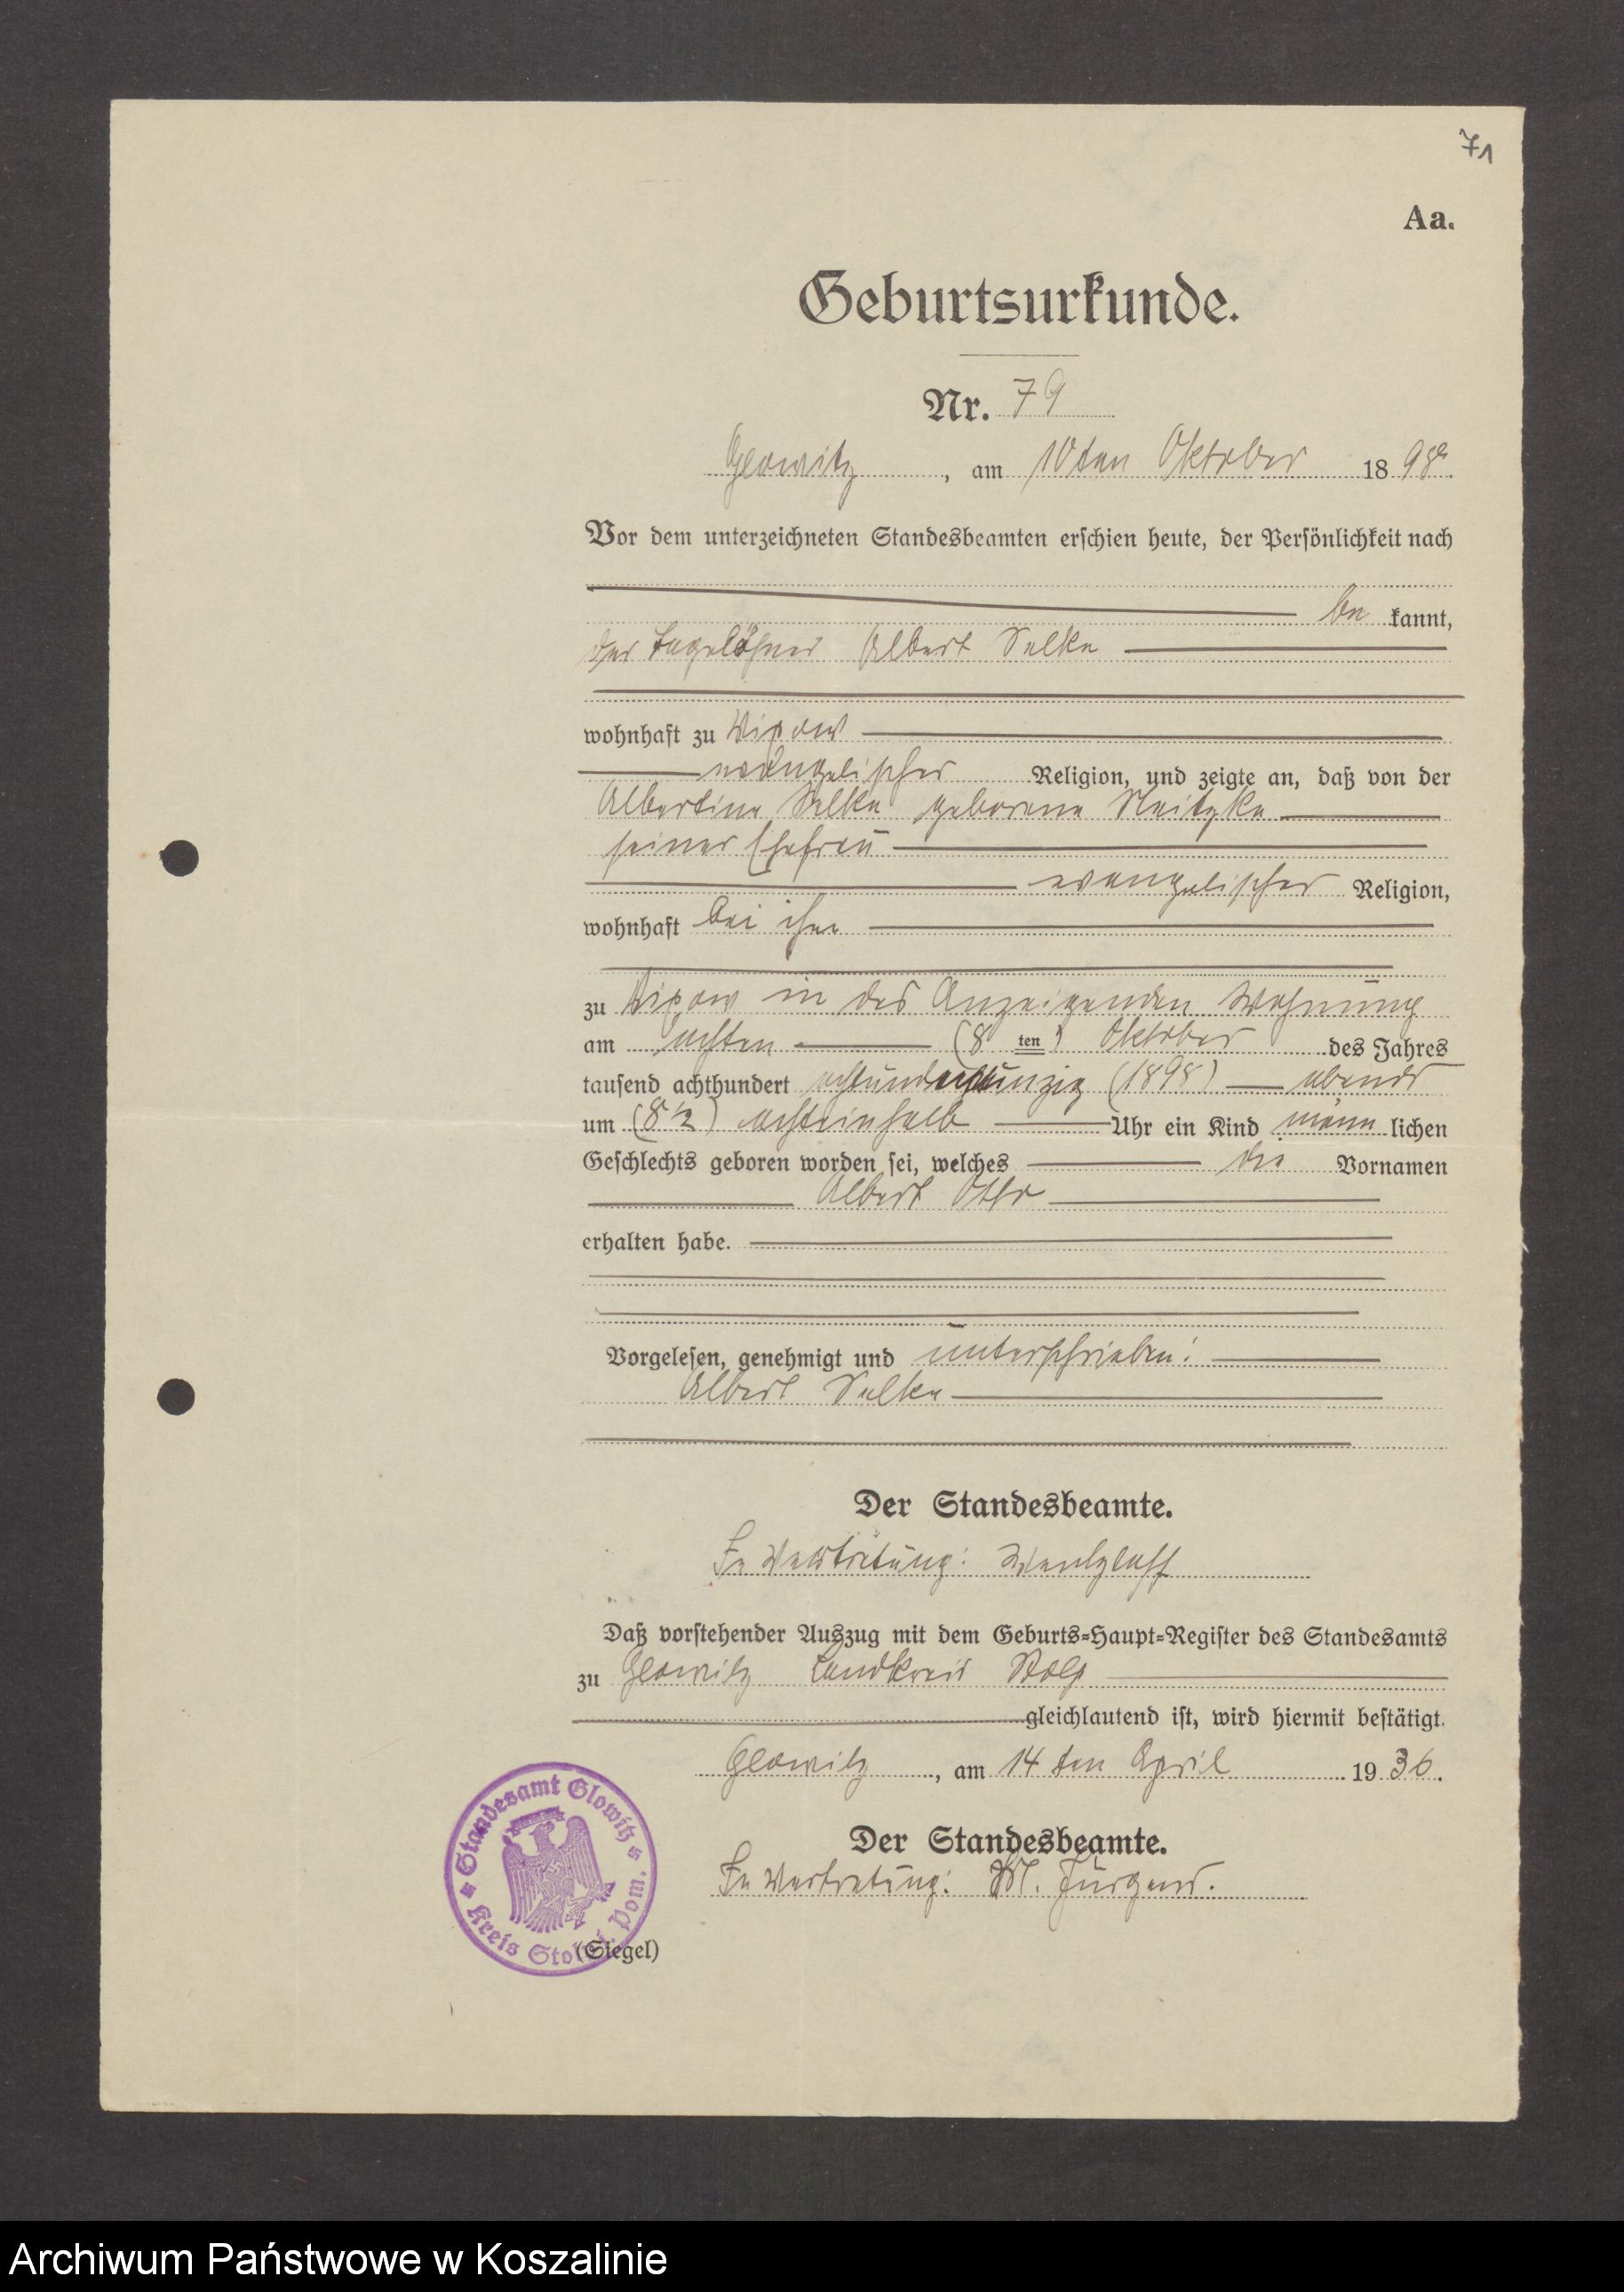 71
Aa.
Geburtsurkunde.
Nr. 79
Glowitz, am 10ten Oktober 1898
Vor dem unterzeichneten Standesbeamten erschien heute, der Persönlichkeit nach
be kannt,
der Tagelöhner Albert Selke
wohnhaft zu Wixow
evangelischer Religion, und zeigte an, daß von der
Albertine Selke geborene
seiner Ehefrau
evangelischer Religion,
wohnhaft bei ihm
zu Wixow in des Anzeigenden Wohnung
am achten (8 ten) Oktober des Jahres
tausend achthundert achtundneunzig (1898) abends
um (8 ½) achteinhalb Uhr ein Kind männ lichen
Geschlechts geboren worden sei, welches die Vornamen
Albert Otto
erhalten habe.
Vorgelesen, genehmigt und unterschrieben:
Albert Selke
Der Standesbeamte.
In Vertretung:
Daß vorstehender Auszug mit dem Geburts-Haupt-Register des Standesamts
zu Glowitz Landkreis Stolp
gleichlautend ist, wird hiermit bestätigt.
Glowitz, am 14 ten April 1936.
Der Standesbeamte.
In Vertretung: M. Jürgens.
Standesamt Glowitz
Kreis Stolp i. Pom.
(Siegel)
Archiwum Państwowe w Koszalinie